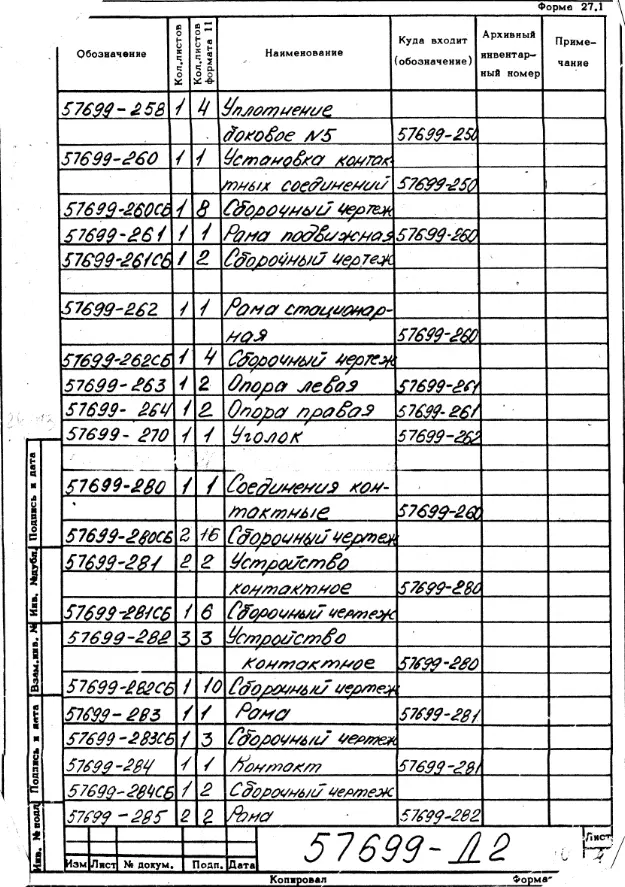 Форма 27.1
Обозначение Кол.листов Кол.листов формата 11 Наименование Куда входит (обозначение) Архивный инвентарный номер Примечание
57699-258 1 4 Уплотнение
боковое N5 57699-250
57699-260 1 1 Установка контак
тных соединений 57699-250
57699-260СБ 1 8 Сборочный чертеж
57699-261 1 1 Рама подвижная 57699-260
57699-261СБ 1 2 Сборочный чертеж
57699-262 1 1 Рама стационар-
ная 57699-260
57699-262СБ 1 4 Сборочный чертеж
57699-263 1 2 Опора левая 57699-261
57699-264 1 2 Опора правая 57699-261
57699-270 1 1 Уголок 57699-262
57699-280 1 1 Соединения кон-
тактные 57699-260
57699-280СБ 2 16 Сборочный чертеж
57699-281 2 2 Устройство
контактное 57699-280
57699-281СБ 1 6 Сборочный чертеж
57699-282 3 3 Устройство
контактное 57699-280
57699-282СБ 1 10 Сборочный чертеж
57699-283 1 1 Рама 57699-281
57699-283СБ 1 3 Сборочный чертеж
57699-284 1 1 Контакт 57699-281
57699-284СБ 1 2 Сборочный чертеж
57699-285 2 2 Рама 57699-282
Подпись и дата
Инв. №дубл.
Взам.инв. №
Подпись и дата
Инв. № подл
57699-Д2
Лист
Изм Лист № докум. Подп. Дата
Копировал Форма